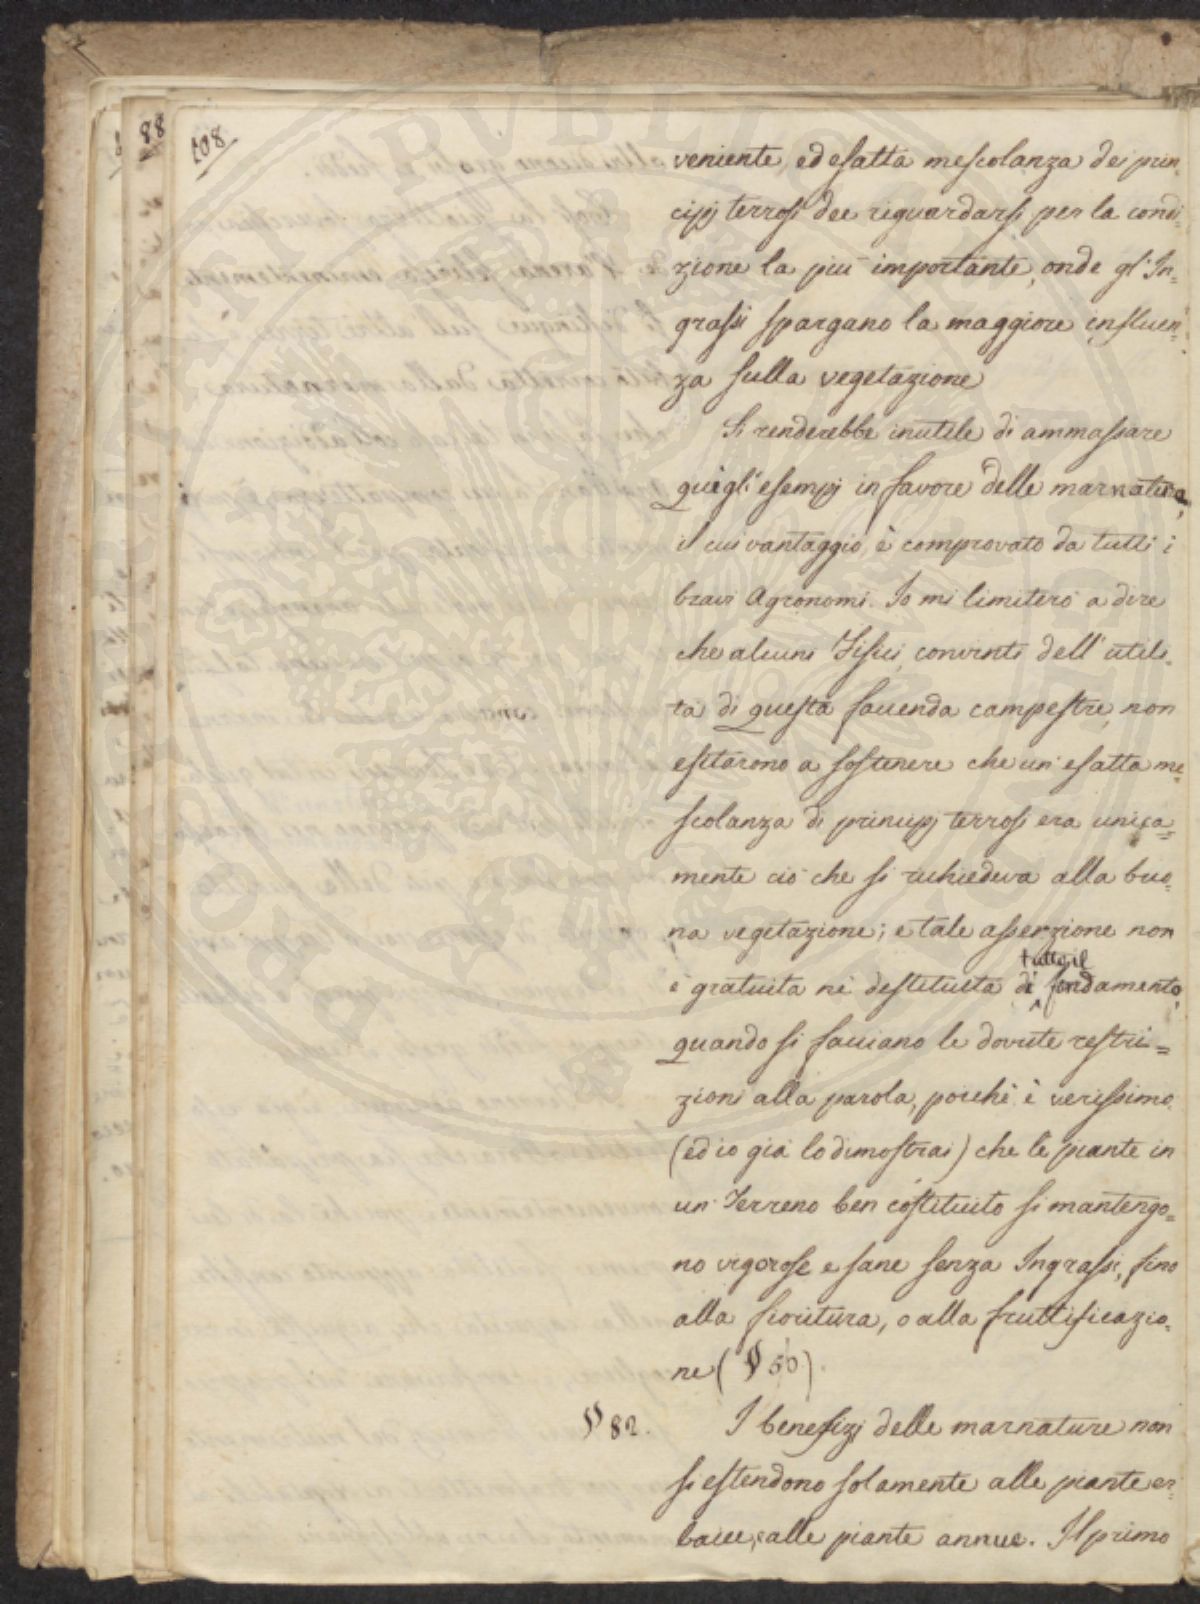 108
88
veniente, ed esatta mescolanza dei prin-
cipj terrosi dee riguardarsi per la condi-
zione la piu importante, onde gl'In-
grassi spargano la maggiore influen-
za sulla vegetazione
Si renderebbe inutile di ammassare
quì gli esempj in favore delle marnature,
il cui vantaggio è comprovato da tutti i
bravi Agronomi. Io mi limiterò a dire
che alcuni Fisici, convinti dell'utili-
tà di questa faccenda campestre, non
esitarono a sostenere che un'esatta me-
scolanza di principj terrosi era unica-
mente ciò che si richiedeva alla buo-
na vegetazione; e tale asserzione non
tutto il
è gratuita nè destituita di fondamento,
quando si facciano le dovute restri=
zioni alla parola, poichè è verissimo
(ed io già lo dimostrai) che le piante in
un Terreno ben costituito si mantengo=
no vigorose e sane senza Ingrassi, fino
alla fioritura, o alla fruttificazio-
ne (§ 50).
§ 82. I benefizj delle marnature non
si estendono solamente alle piante er-
bacee, alle piante annue. Il primo
PROSPERITATI PVBLICAE